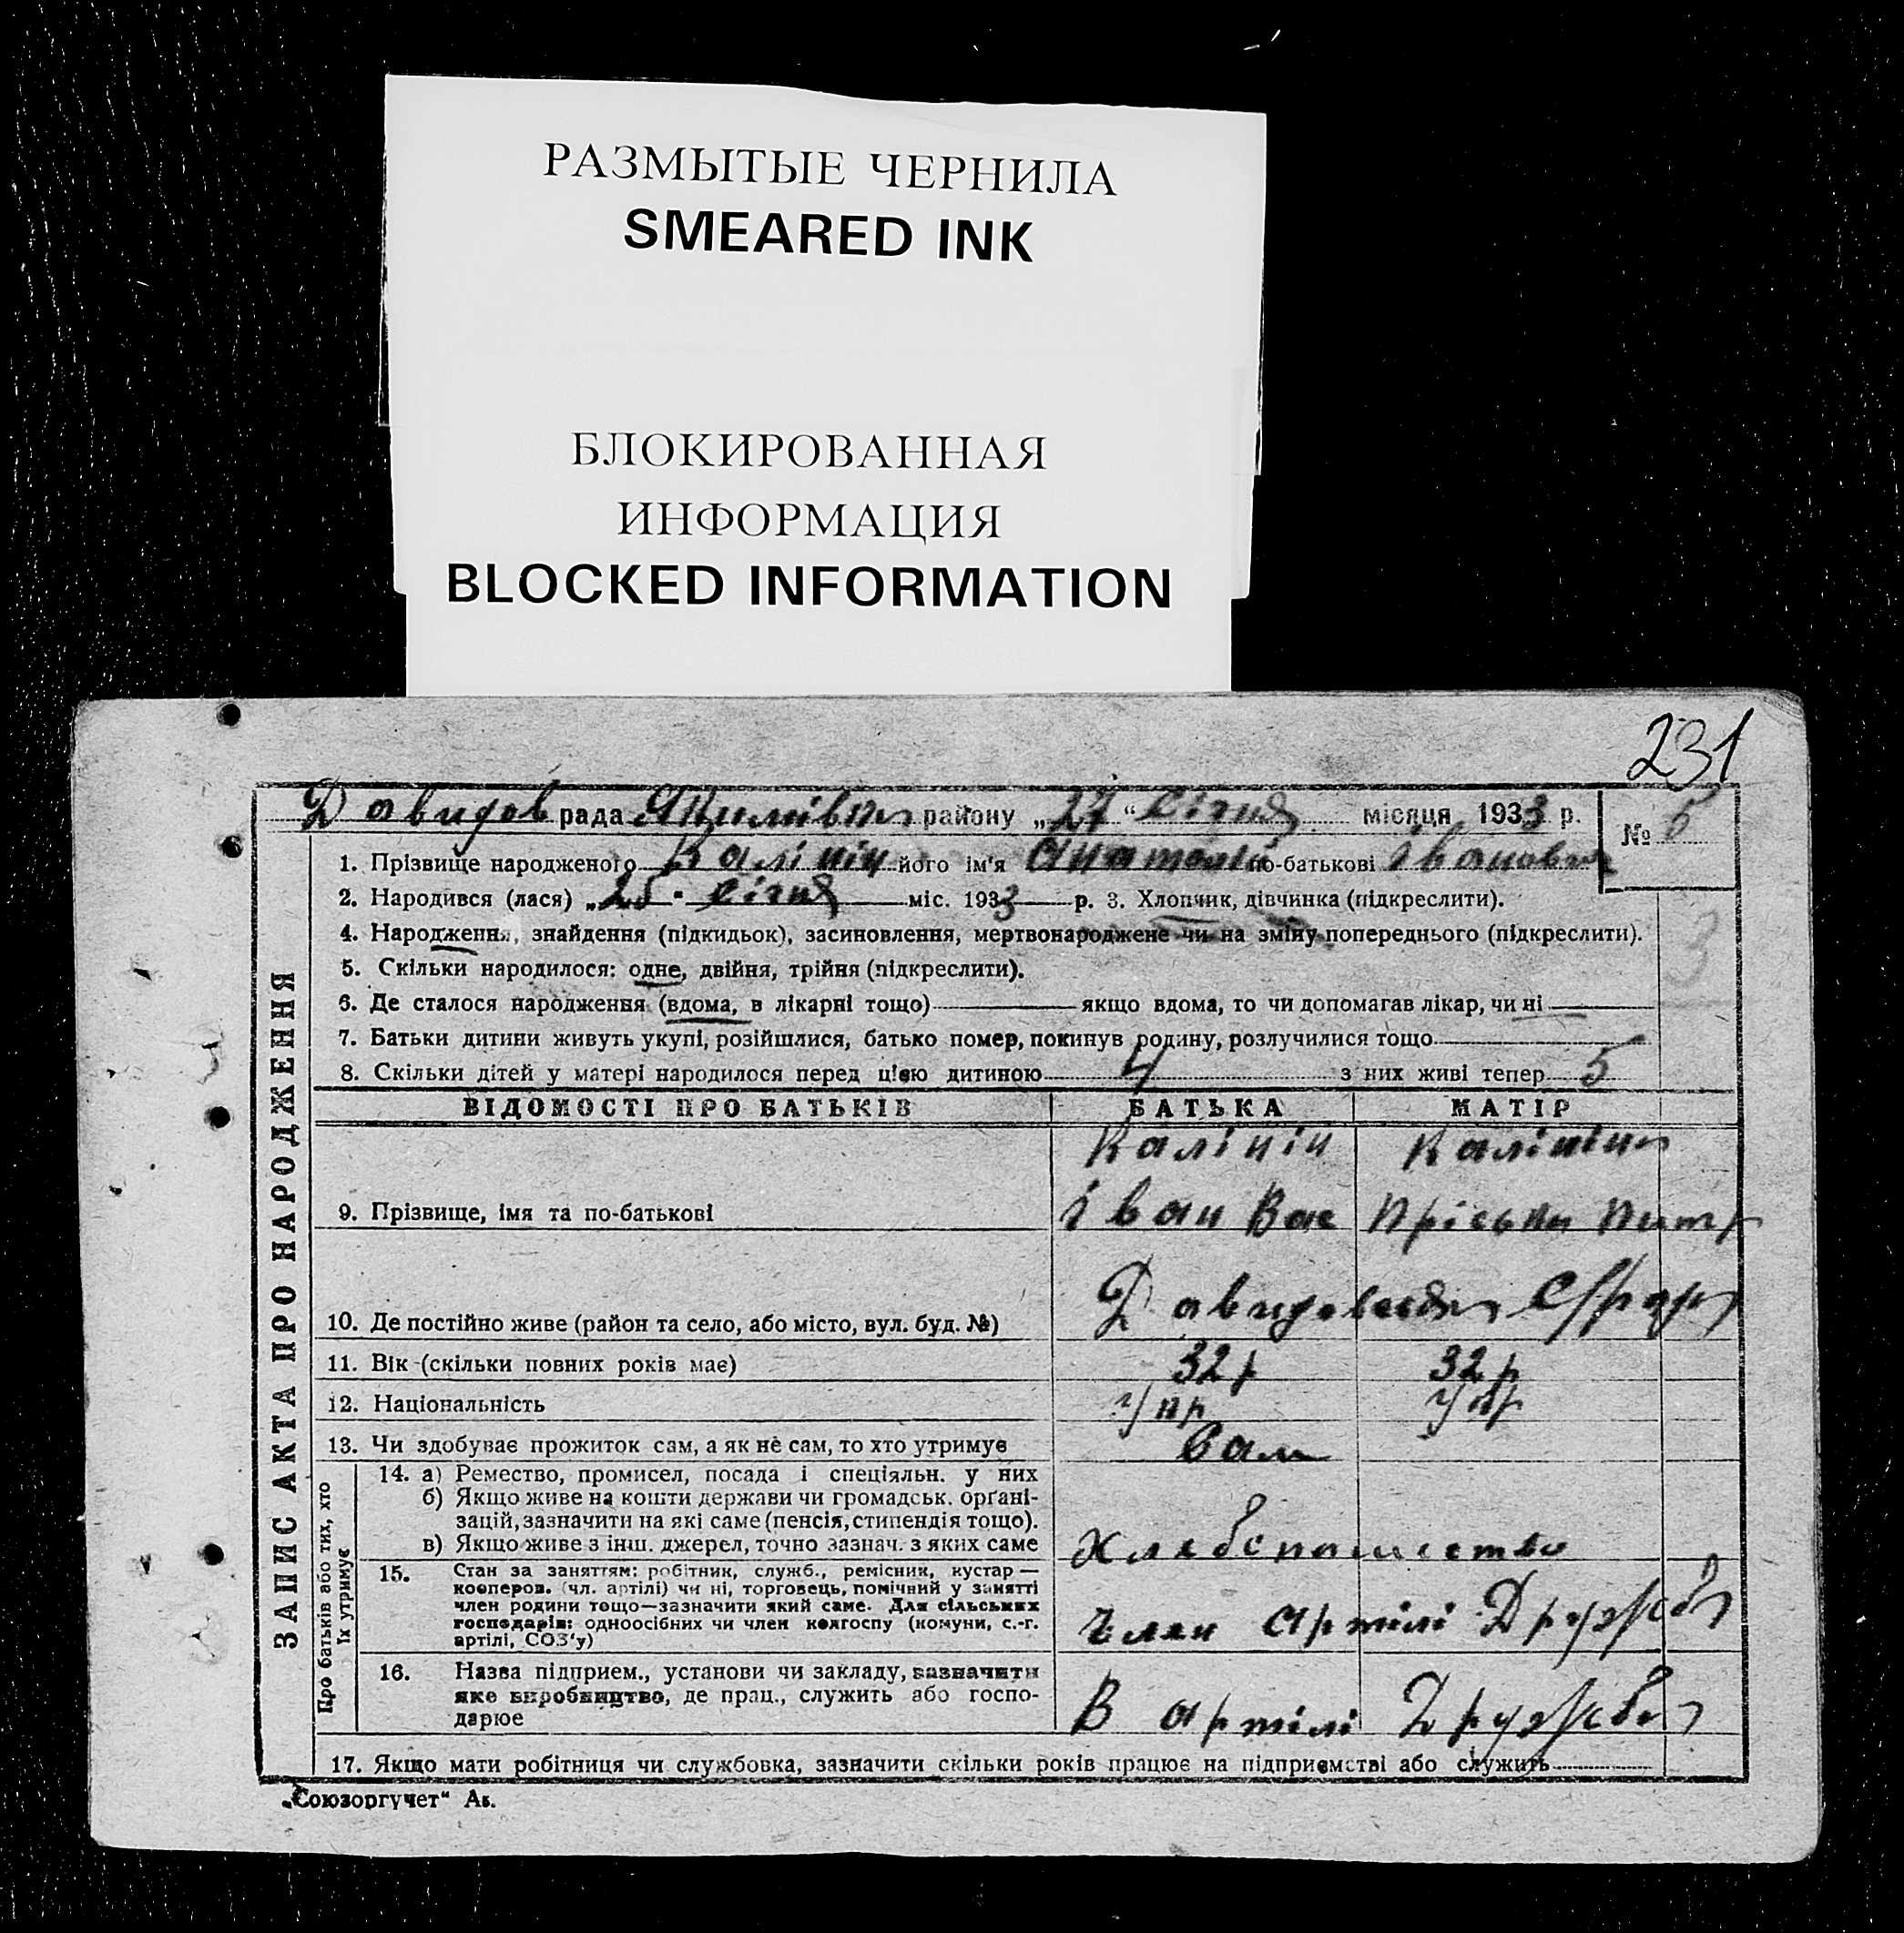 РАЗМЫТЫЕ ЧЕРНИЛА
SMEARED INK
БЛОКИРОВАННАЯ
ИНФОРМАЦИЯ
BLOCKED INFORMATION
231
Давидов рада Якимівськ району „27“ Січня місяця 1933 р. № 5
1. Прізвище народженого Калінін його ім'я Анатолій по-батькові Іванович
2. Народився (лася) „25" Січня міс. 1933 р. 3. Хлопчик, дівчинка (підкреслити).
4. Народження, знайдення (підкидьок), засиновлення, мертвонароджене чи на зміну попереднього (підкреслити).
5. Скільки народилося: одне, двійня, трійня (підкреслити).
6. Де сталося народження (вдома, в лікарні тощо) якщо вдома, то чи допомагав лікар, чи ні
7. Батьки дитини живуть укупі, розійшлися, батько помер, покинув родину, розлучилися тощо
8. Скільки дітей у матері народилося перед цією дитиною 4 з них живі тепер 5
ЗАПИС АКТА ПРО НАРОДЖЕННЯ
ВІДОМОСТІ ПРО БАТЬКІВ БАТЬКА МАТІР
Калінін Калініна
9. Прізвище, імя та по-батькові Іван Вас Пріська Питр
10. Де постійно живе (район та село, або місто, вул. буд. №)
11. Вік (скільки повних років має) 32 р 32 р
12. Національність Укр Укр
13. Чи здобуває прожиток сам, а як не сам, то хто утримує Сам
Про батьків або тих, хто їх утримує
14. а) Ремество, промисел, посада і спеціяльн. у них
б) Якщо живе на кошти держави чи громадськ. орґані-
зацій, зазначити на які саме (пенсія, стипендія тощо).
в) Якщо живе з інш. джерел, точно зазнач. з яких саме
15. Стан за заняттям: робітник, служб., ремісник, кустар—
кооперов. (чл. артілі) чи ні, торговець, помічний у занятті
член родини тощо—зазначити який саме. Для сільських
господарів: одноосібних чи член колгоспу (комуни, с.-г.
артілі, СОЗ'у) Член Артілі Дружба
16. Назва підприєм., установи чи закладу, зазначити
яке виробництво, де прац., служить або госпо-
дарює В артілі Дружба
17. Якщо мати робітниця чи службовка, зазначити скільки років працює на підприємстві або служить
„Союзоргучет“ Ак.